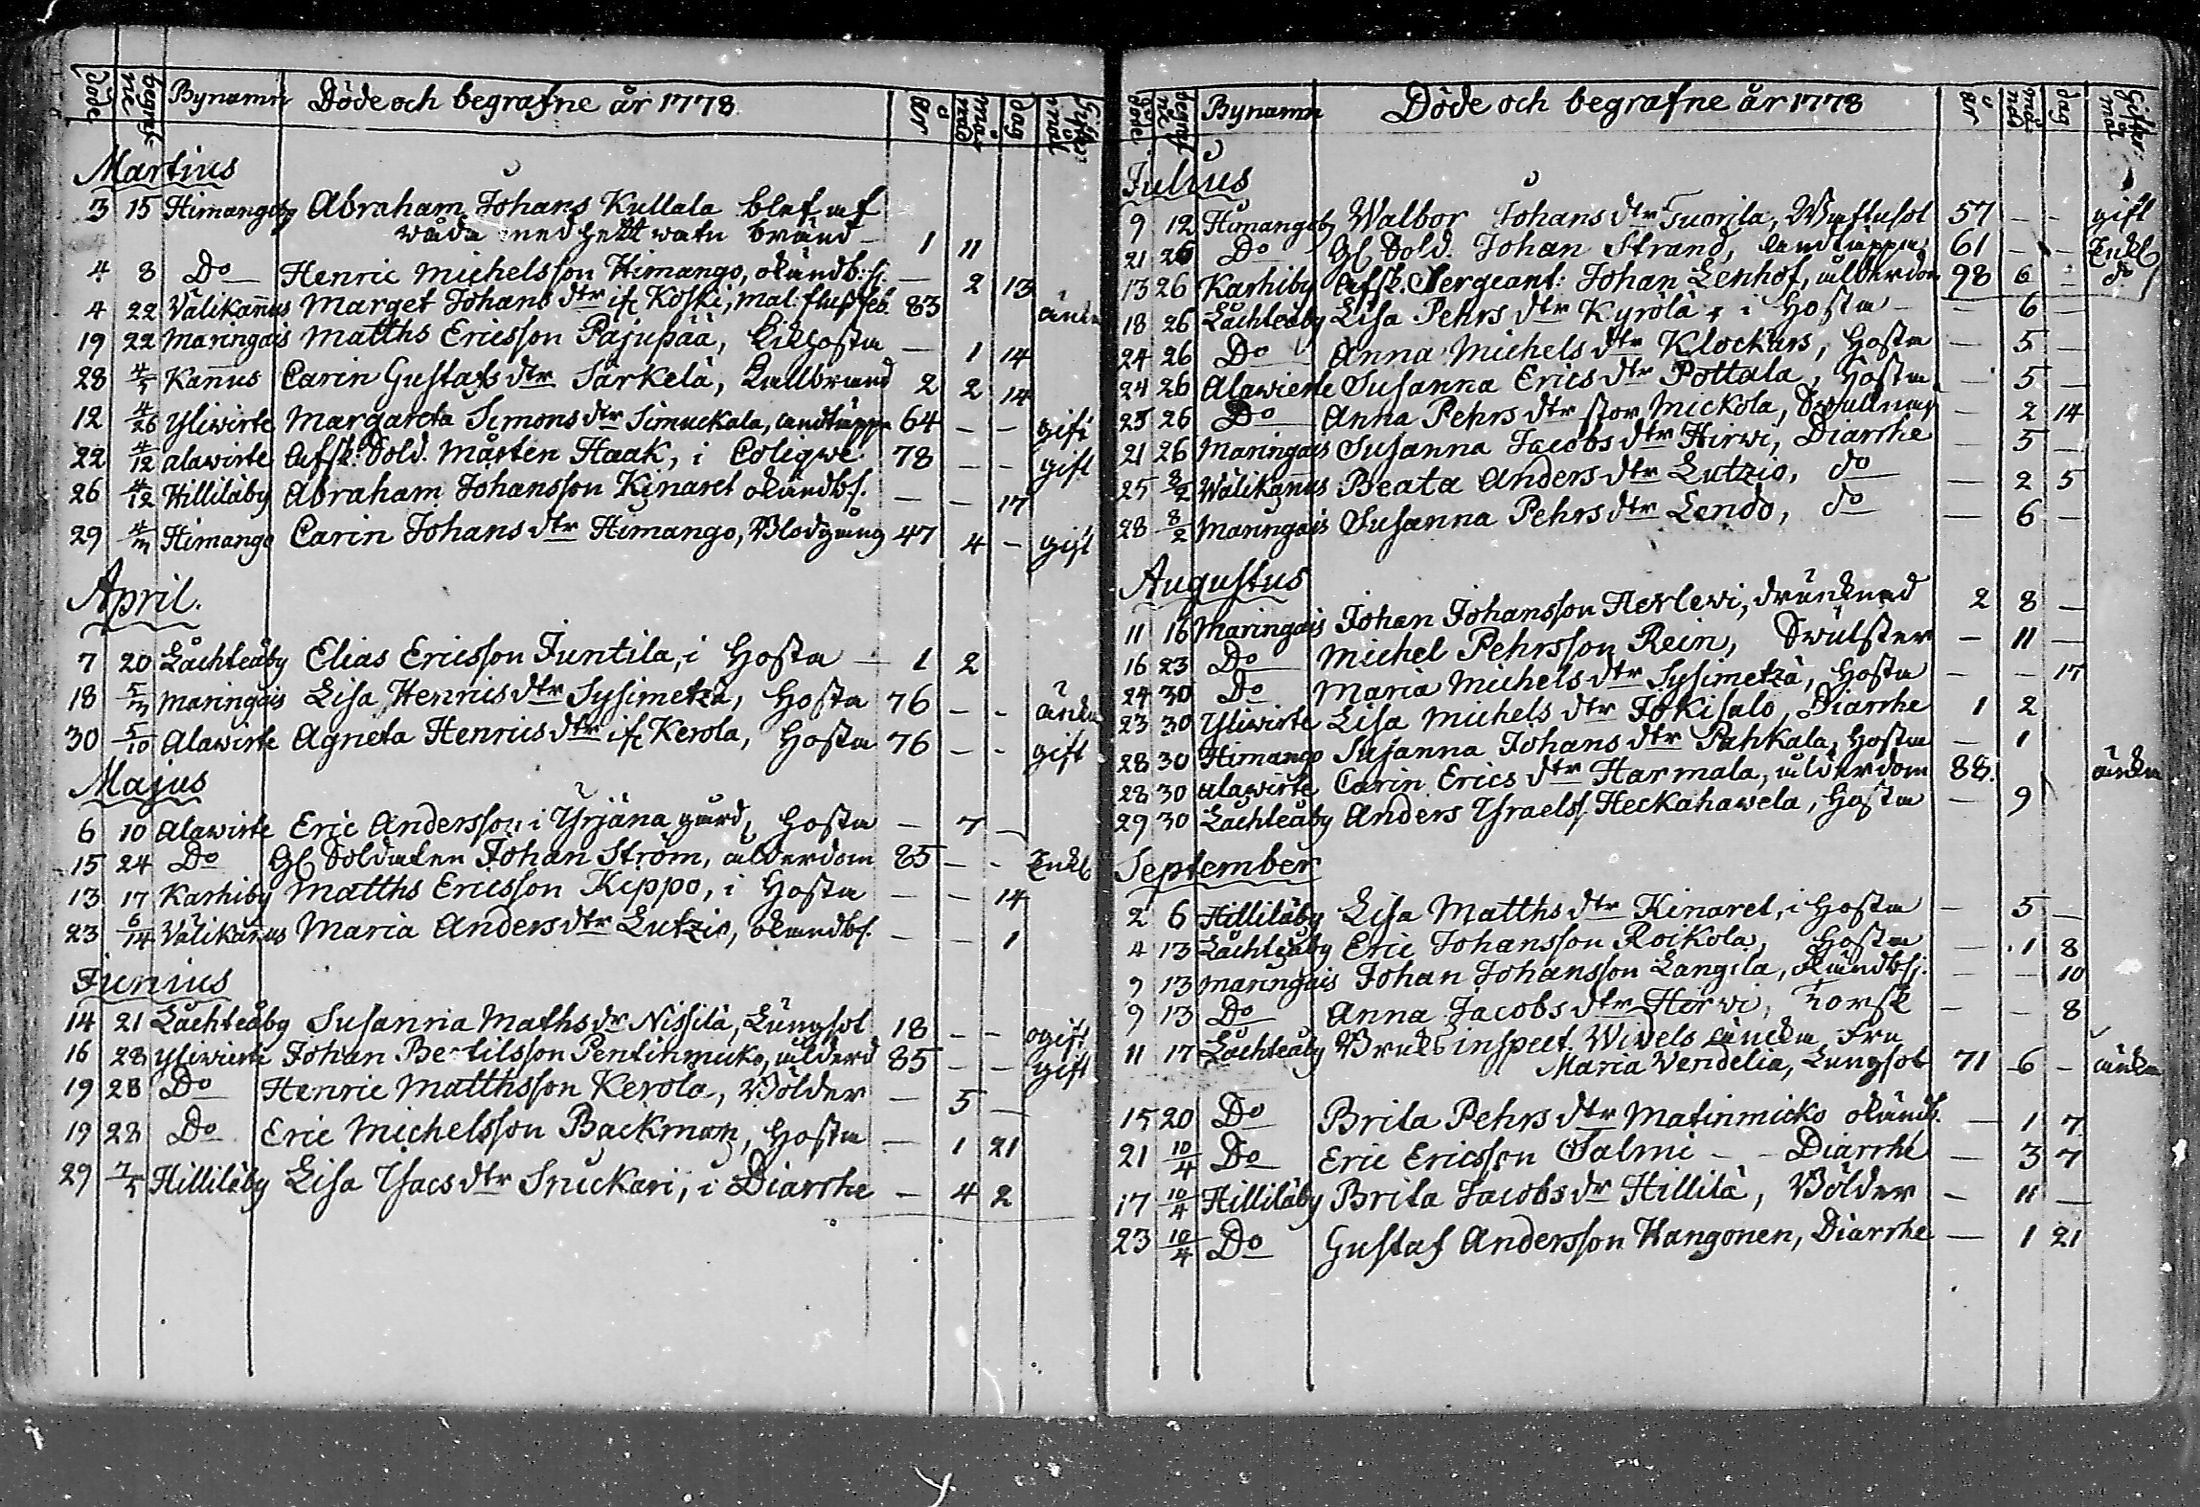 Döde begrafne Bynamn Döde och begrafne år 1778 År månad dag Giftermål
Martius
3 15 Himangoby Abraham Johans Kullala blef af
våda med hett watn bränd - 1 11
4 8 Do Henric Michelsson Himango, okändb:sj. — 2 13
4 22 Välikanus Marget Johans dtr if: Koski, mal: flussfeb. 83 änka
19 22 Maringais Matths Ericsson Pajupää, Kikhosta — 1 14
28 4/5 Kanus Carin Gustafs dtr Särkelä, Kallbrand 2 2 14
12 4/26 Yliwirte Margareta Simons dtr Simuckala, andtäppa 64 - - gift
22 4/12 Alawirte Afsk. Sold. Mårten Haak, i Coliqve 78 - - gift
26 4/12 Hilliläby Abraham Johansson Kinaret okändbs. — — 17
29 4/ Himango Carin Johans dtr Himango, Blodgång 47 4 - gift
April.
7 20 Lachteåby Elias Ericsson Juntila, i Hosta — 1 2
18 5/ Maringais Lisa Henricsdtr Sysimetzä, Hosta 76 - - änka
30 5/10 Alawirte Agneta Henricsdtr if: Kerola, Hosta 76 - - gift
Majus
6 10 Alawirte Eric Andersson i Yrjäna gård, Hosta — 7 —
15 24 Do Gl. Soldaten Johan Ström, ålderdom 85 - - Enkl
13 17 Karhiby Matths Ericsson Kippo, i Hosta — — 14
23 6/14 Välikanus Maria Andersdtr Lutzio, okändbs. — — 1
Junius
14 21 Lachteåby Susanna Mathsdr Nissilä, Lungsot 18 - - ogift
16 28 Yliwirte Johan Bertilsson Pentinmicko, ålderd 85 - - gift
19 28 Do Henric Matthsson Kerola, Bölder — 5 —
19 28 Do Eric Michelsson Backman, Hosta — 1 21
29 7/5 Hilliläby Lisa Isacsdtr Snickari, i Diarrhe — 4 2
Döde begrafne Bynamn Döde och begrafne år 1778 År månad dag Giftermål
Julius
9 12 Himangoby Walbor Johans dtr Tuorila, Wattusot 57 - - gift
21 26 Do Gl. Sold. Johan Strand, andtäppa 61 - - Enkl
13 26 Karhiby Afsk. Sergeant: Johan Lenhof, ålderdom 98 6 - do
18 26 Lachteåby Lisa Pehrs dtr Kyrölä, i Hosta — 6 —
24 26 Do Anna Michels dtr Klockars, Hosta — 5 —
24 26 Alawirte Susanna Erics dtr Pottala, Hosta — 5 —
25 26 Do Anna Pehrs dtr stor Mickola, Swullnad — 2 14
21 26 Maringais Susanna Jacobs dtr Hirwi, Diarrhe — 5 —
25 8/2 Wälikanus Beata Anders dtr Lutzio, do — 2 5
28 8/2 Maringais Susanna Pehrs dtr Lendo, do — 6 —
Augustus
11 16 Maringais Johan Johansson Herlewi, drunknad 2 8 —
16 23 Do Michel Pehrsson Rein, Swulster — 11 —
24 30 Do Maria Michels dtr Sysimetzä, Hosta — — 17
23 30 Yliwirte Lisa Michels dtr Jokisalo, Diarrhe 1 2
28 30 Himango Susanna Johans dtr Pahkala, Hosta — 1
28 30 Alawirte Carin Erics dtr Harmala, ålderdom 88. änka
29 30 Lachteåby Anders Israelss. Heckahawela, Hosta — 9
September
2 6 Hilliläby Lisa Matths dtr Kinaret, i Hosta — 5 —
4 13 Lachteåby Eric Johansson Roikola, Hosta — 1 8
9 13 Maringais Johan Johansson Langila, okändbsj. — — 10
9 13 Do Anna Jacobs dtr Herwi, Torsk — — 8
11 17 Lachteåby Bruksinspect. Widels änka, Fru
Maria Vendelia, Lungsot 71 6 - änka
15 20 Do Brita Pehrs dtr Matinmicko okändb. — 1 7
21 10/4 Do Eric Ericsson Salmi - - Diarrhe — 3 7
17 10/4 Hilliläby Brita Jacobs dr Hillilä, Bölder — 11 —
23 10/4 Do Gustaf Andersson Kangonen, Diarrhe — 1 21